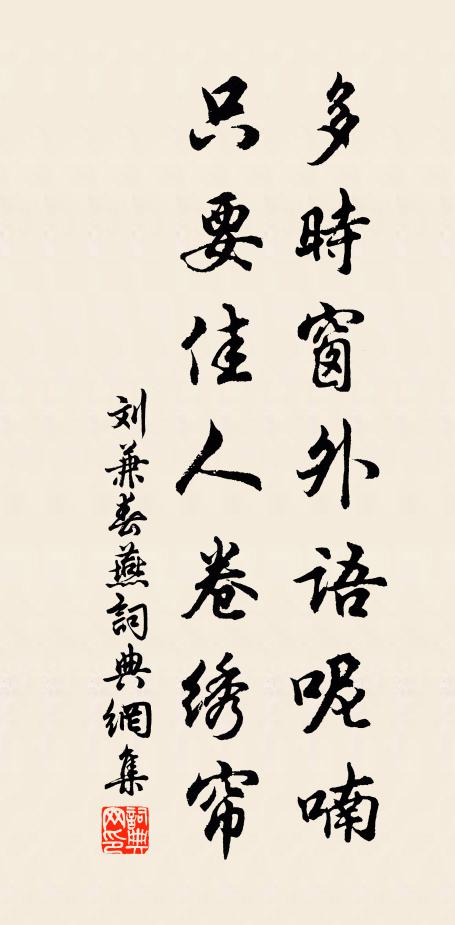 多時窗外語呢喃
只要佳人卷绣帘
刘兼春燕詞典網集
詞典网印